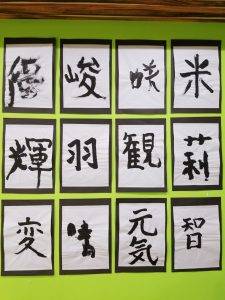 峻
米
輝
羽
観
莉
変
晴
元気
智